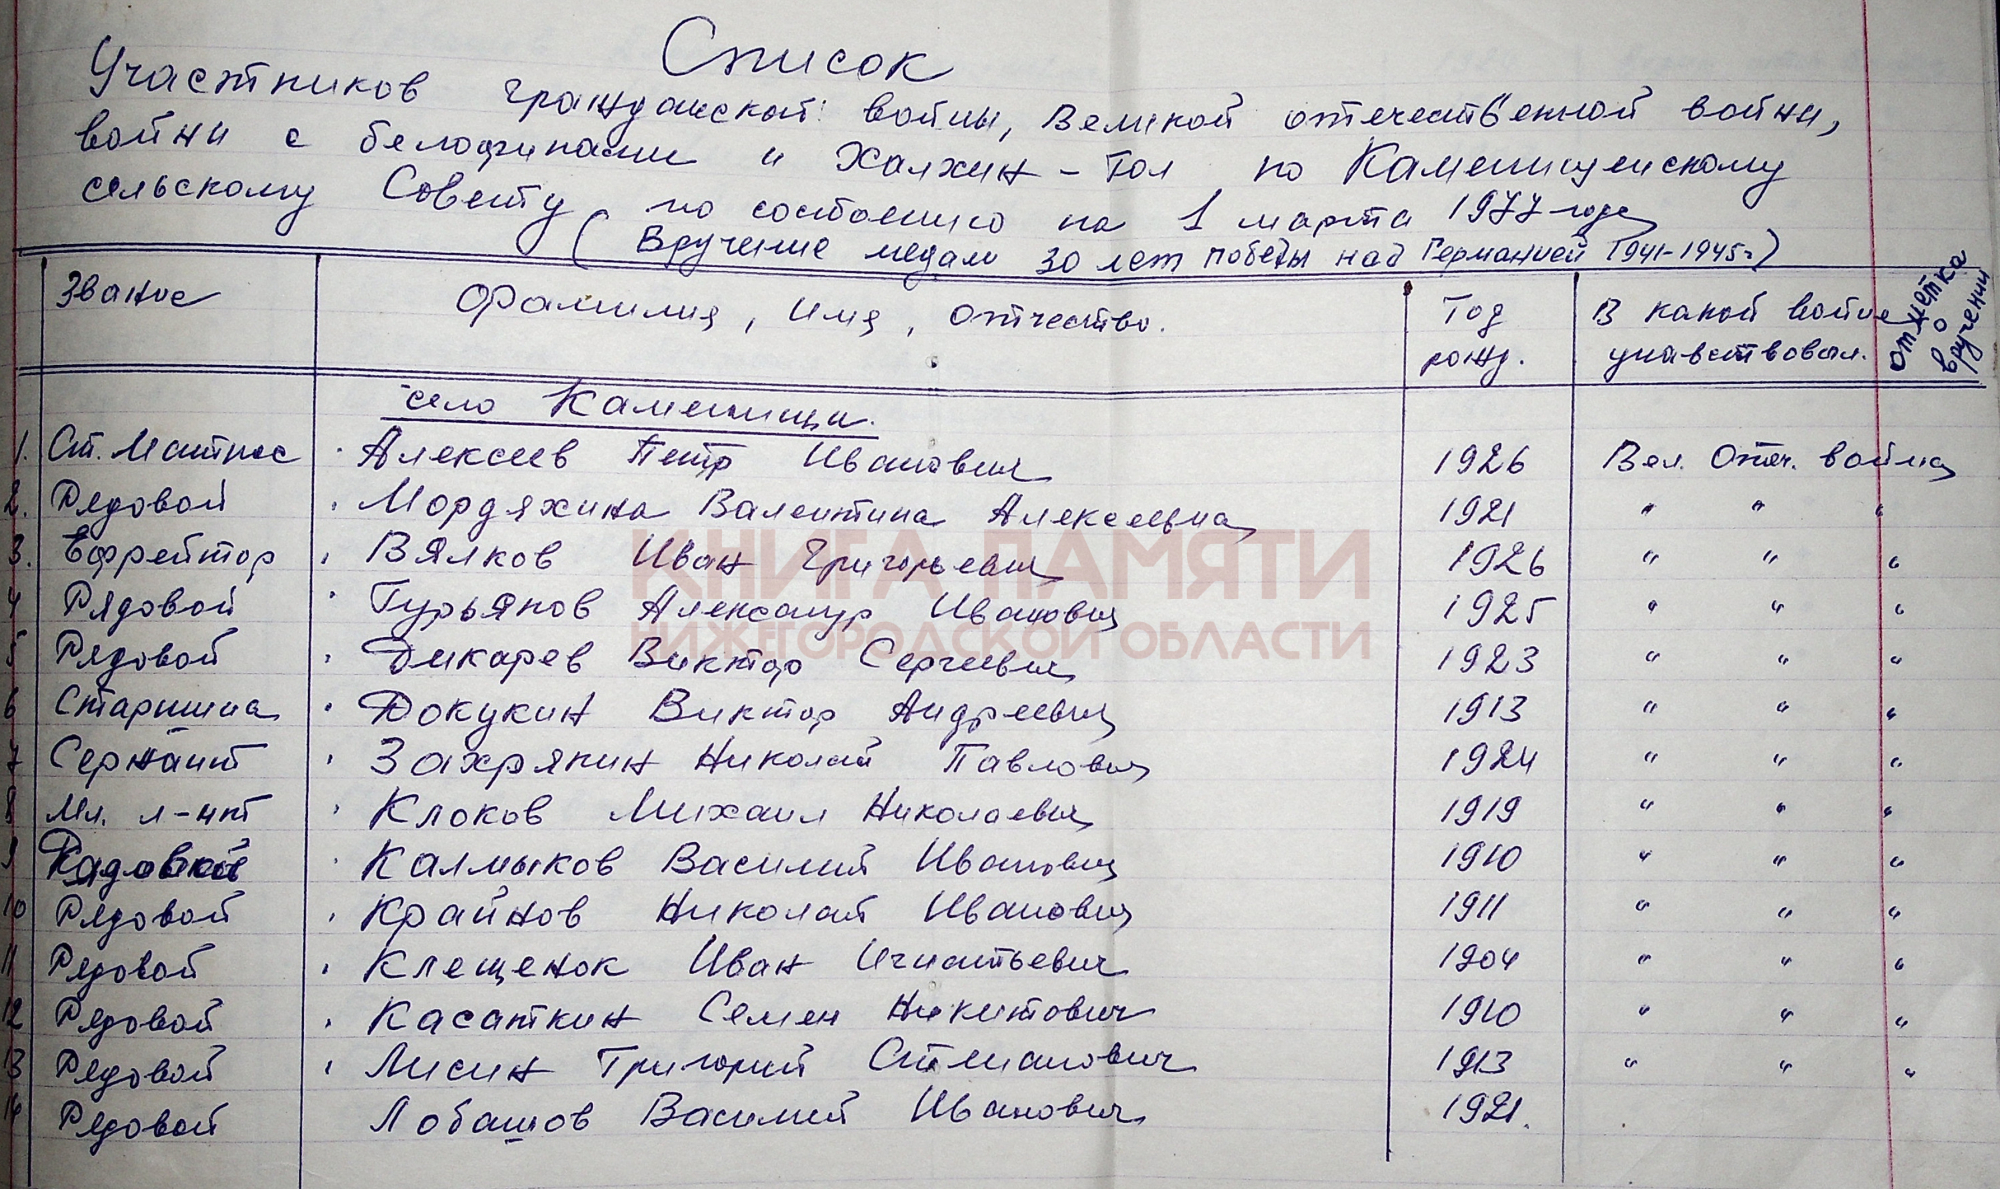 Список
Участников гражданской войны, Великой отечественной войны,
войны с белофинами и Халхин-Гол по Каменищенскому
сельскому Совету по состоянию на 1 марта 1977 года
(Вручение медали 30 лет победы над Германией 1941-1945г)
Звание Фамилия, имя, отчество. Год рожд. В какой войне участвовал. отметка о вручении
село Каменищи.
1. Ст. Матрос Алексеев Петр Иванович 1926 Вел. Отеч. война
2. Рядовой Мордяхина Валентина Алексеевна 1921 " " "
3. Ефрейтор Вялков Иван Григорьевич 1926 " " "
4 Рядовой Гурьянов Александр Иванович 1925 " " "
5 Рядовой Дикарев Виктор Сергеевич 1923 " " "
6 Старшина Докукин Виктор Андреевич 1913 " " "
7 Сержант Захряпин Николай Павлович 1924 " " "
8 Мл. л-нт Клоков Михаил Николаевич 1919 " " "
9 Калмыков Василий Иванович 1910 " " "
10 Рядовой Крайнов Николай Иванович 1911 " " "
11 Рядовой Клещенок Иван Игнатьевич 1904 " " "
12 Рядовой Касаткин Семен Никитович 1910 " " "
13 Рядовой Лисин Григорий Степанович 1913 " " "
14 Рядовой Лобашов Василий Иванович 1921.
КНИГА ПАМЯТИ
НИЖЕГОРОДСКОЙ ОБЛАСТИ